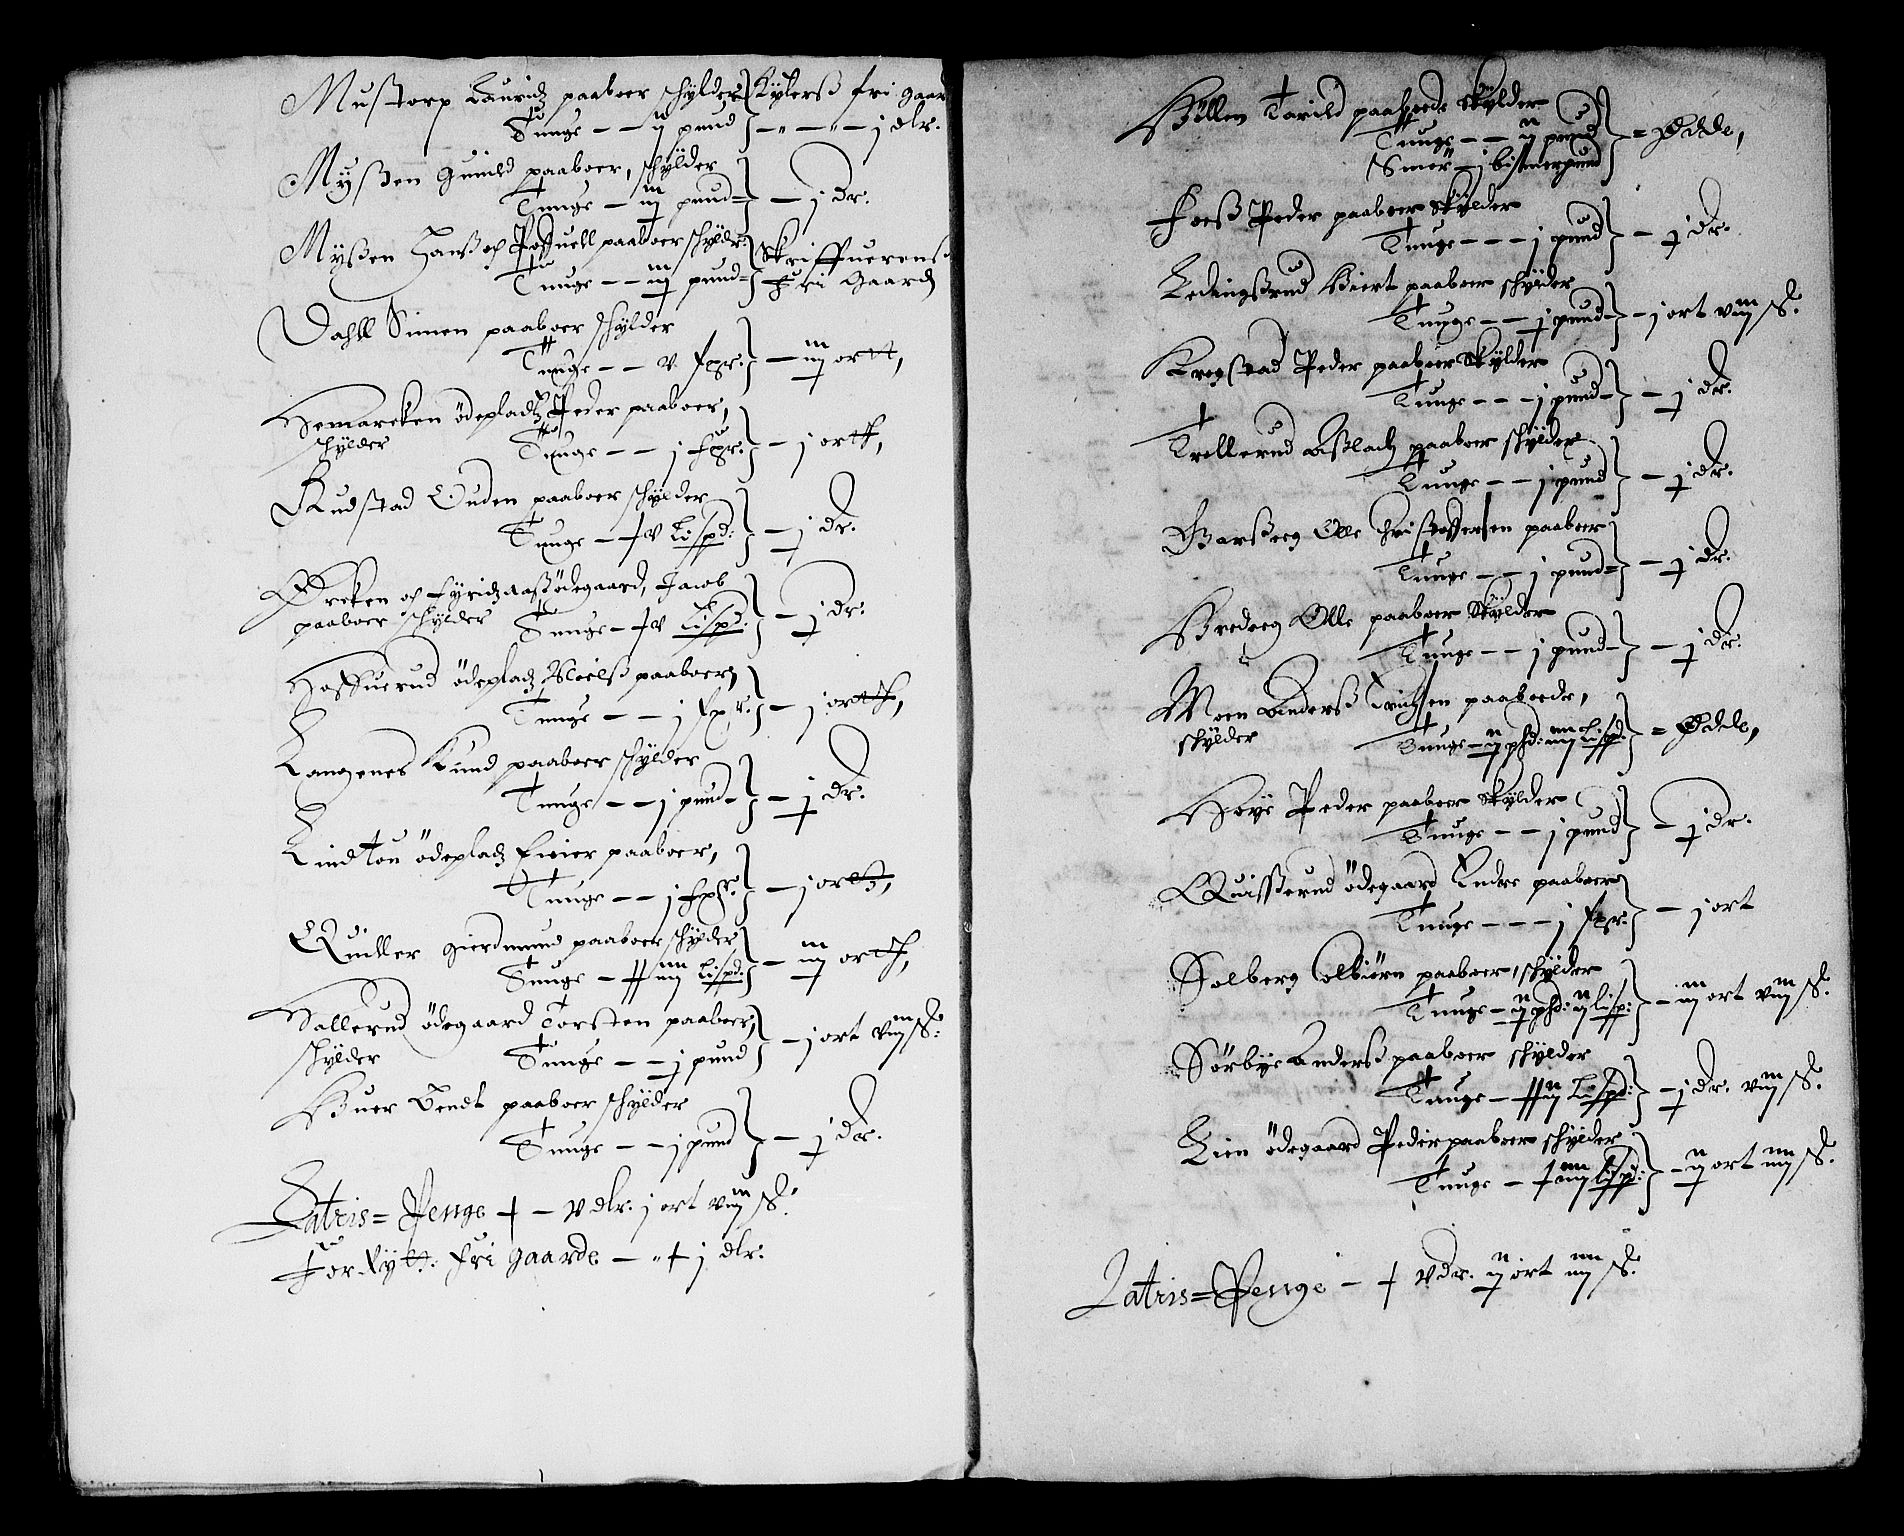 Mustorp Lauridz paaboer schylder Rytterß fri gaar
Tunge – – ij pund – „ – „ – j dlr.
Myßen Gunild paaboer, schylder
Tunge – iij pund – j dr.
Myßen Hanß och Poffuell paaboer schylder Skriffuerens
Tunge – – iij pund = fri Gaard
Dahll Simen paaboer schylder
Tunge – – v fxr: – iij ortt,
Hemarcken ödepladz Peder paaboer,
schylder Tunge – – j fxr: – j ortt,
Rudstad Ouden paaboer schylder
Tunge – v Lispd: – j dr.
Ørcken och fyridzaaß ödegaard, Jacob
paaboer schylder Tunge – v Lispd: – j dr:
Hoffuerud ödepladz Nielß paaboer,
Tunge – – j fxr: – j ortt,
Langenes Knud paaboer schylder
Tunge – – j pund – j dr.
Lindtou ödepladz Einer paaboer,
Tunge – – j fxr: – j ortt,
Quiller Gierdmund paaboer schylder
Tunge – iiij Lispd: – iij ortt,
Hallerud ödegaard Torsten paaboer,
schylder Tunge – – j pund – j ort viij ß:
Buer Bendt paaboer schylder
Tunge – – j pund – j dr.
Latris = Penge – v dlr. j ort viij ß:
For Rytt: fri gaarde – „ j dlr:
Hillen Tarild paaboede skylder
Tunge – – ij pund = Øde,
Smör – j bismerpund
Foeß Peder paaboer skylder
Tunge – – – j pund – j dr.
Ledingßrud Siert paaboer schylder
Tunge – – j pund – j ort viij ß.
Kregstad Peder paaboer skylder
Tunge – – – j pund – j dr.
Trollerud Aßlach paaboer schylder
Tunge – – j pund – j dr.
Garßeeg Olle Christoffersen paaboer
Tunge – – j pund = – j dr.
Bredeeg Olle paaboer skylder
Tunge – – j pund – j dr.
Moen Anderß paaboede,
skylder Tunge – ij phd: iiij Lispd: = Øde,
Høye Peder paaboer skylder
Tunge – – j pund – j dr.
Quisserud ödegaard Endre paaboer
Tunge – – – j fxr. – j ort
Solberg Albiörn paaboer, schylder
Tunge – ij phd: ij lisp: – iij ort viij ß.
Sörbye Anderß paaboer schylder
Tunge – ij Lispd: – j dr. viij ß.
Lien ödegaard Peder paaboer schylder
Tunge – iiij lispd: – ij ort iiij ß.
Latris = Penge – v dr. ij ort iiij ß.